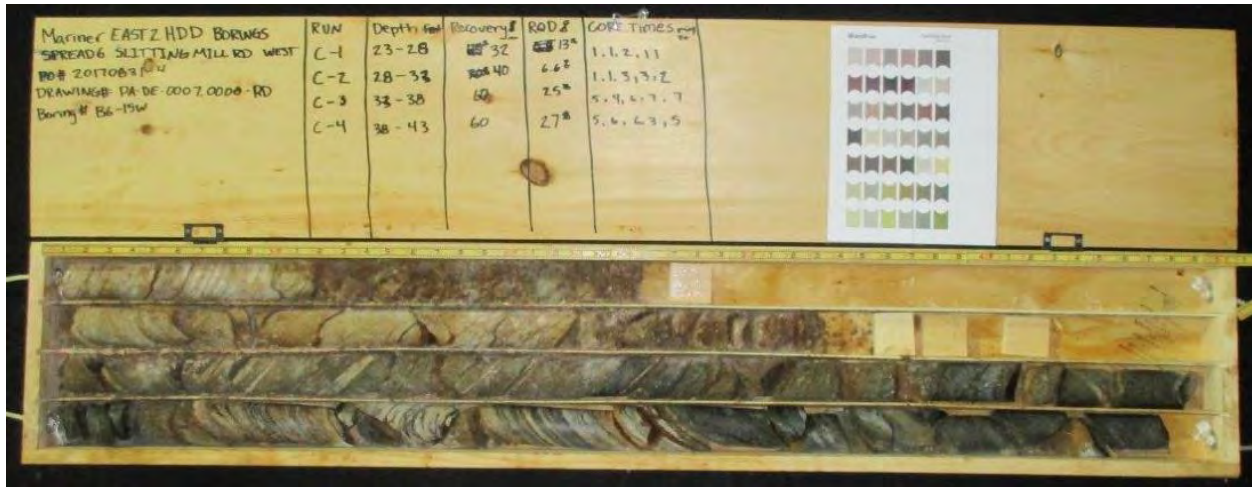 Mariner EAST 2 HDD BORINGS
SPREAD 6 SLITTING MILL RD WEST
PO# 20170831-4
DRAWING# PA-DE-0007.0000-RD
Boring# B6-15W
RUN Depth Recovery RQD CORE Times
C-1 23-28 32 13 1,1,2,11
C-2 28-33 40 6.6 1,1,3,3,2
C-3 33-38 60 25
C-4 38-43 60 27 5,6,6,3,5